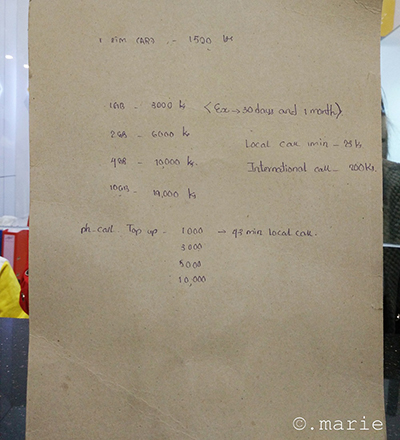 1 Sim CARD - 1500 ks
1GB - 3000 ks (Ex → 30 days and 1 month)
2GB - 6000 ks Local call 1min - 23 ks
4GB - 10,000 ks. International call - 200 ks.
10GB - 19,000 ks
ph-card Top up - 1000 → 43 min local call.
3000
5000
10,000
©.marie